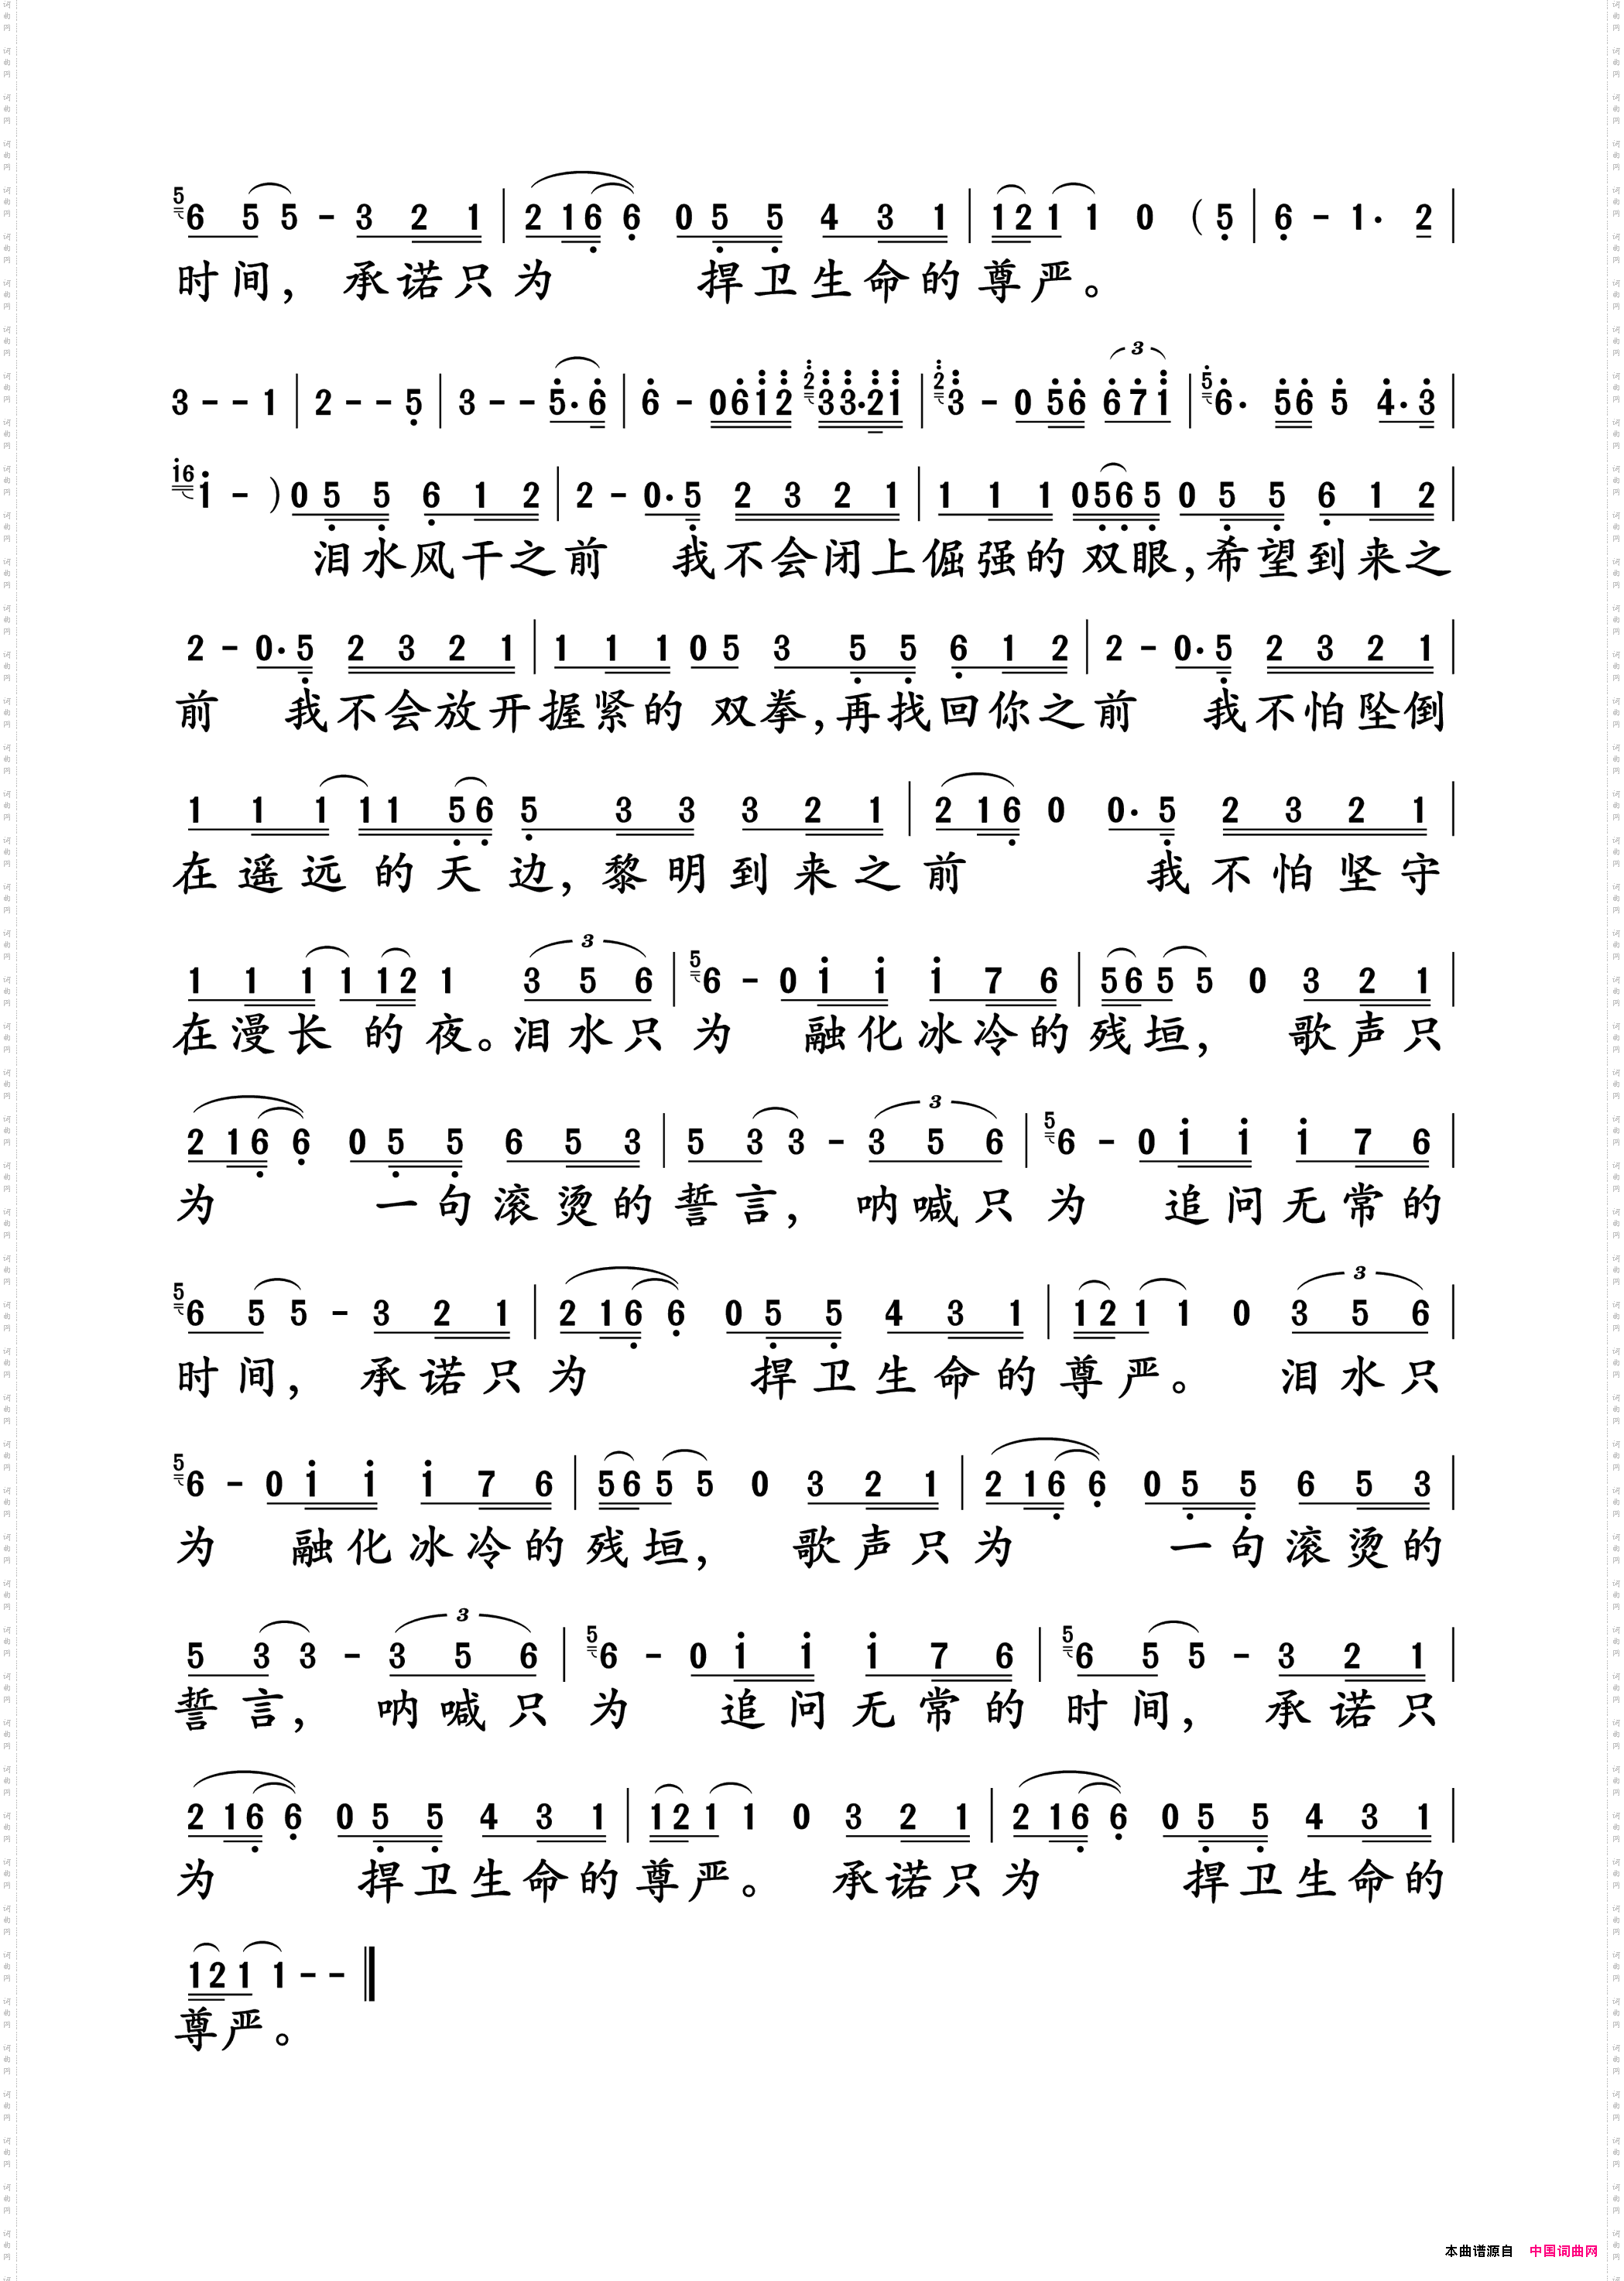 5 6 5 5 - 3 2 1 | 2 1 6 6 0 5 5 4 3 1 | 1 2 1 1 0 ( 5 | 6 - 1 · 2 |
时间，承诺只为 捍卫生命的尊严。
3 - - 1 | 2 - - 5 | 3 - - 5 · 6 | 6 - 0 6 1 2 2 3 3 · 2 1 | 2 3 - 0 5 6 3 6 7 1 | 5 6 · 5 6 5 4 · 3 |
1 6 1 - ) 0 5 5 6 1 2 | 2 - 0 · 5 2 3 2 1 | 1 1 1 0 5 6 5 0 5 5 6 1 2 |
泪水风干之前 我不会闭上倔强的双眼，希望到来之
2 - 0 · 5 2 3 2 1 | 1 1 1 0 5 3 5 5 6 1 2 | 2 - 0 · 5 2 3 2 1 |
前 我不会放开握紧的双拳，再找回你之前 我不怕坠倒
1 1 1 1 1 5 6 5 3 3 3 2 1 | 2 1 6 0 0 · 5 2 3 2 1 |
在遥远的天边，黎明到来之前 我不怕坚守
1 1 1 1 1 2 1 3 3 5 6 | 5 6 - 0 1 1 1 7 6 | 5 6 5 5 0 3 2 1 |
在漫长的夜。泪水只为 融化冰冷的残垣，歌声只
2 1 6 6 0 5 5 6 5 3 | 5 3 3 - 3 3 5 6 | 5 6 - 0 1 1 1 7 6 |
为 一句滚烫的誓言，呐喊只为 追问无常的
5 6 5 5 - 3 2 1 | 2 1 6 6 0 5 5 4 3 1 | 1 2 1 1 0 3 3 5 6 |
时间，承诺只为 捍卫生命的尊严。泪水只
5 6 - 0 1 1 1 7 6 | 5 6 5 5 0 3 2 1 | 2 1 6 6 0 5 5 6 5 3 |
为 融化冰冷的残垣，歌声只为 一句滚烫的
5 3 3 - 3 3 5 6 | 5 6 - 0 1 1 1 7 6 | 5 6 5 5 - 3 2 1 |
誓言，呐喊只为 追问无常的时间，承诺只
2 1 6 6 0 5 5 4 3 1 | 1 2 1 1 0 3 2 1 | 2 1 6 6 0 5 5 4 3 1 |
为 捍卫生命的尊严。承诺只为 捍卫生命的
1 2 1 1 - - ‖
尊严。
本曲谱源自 中国词曲网